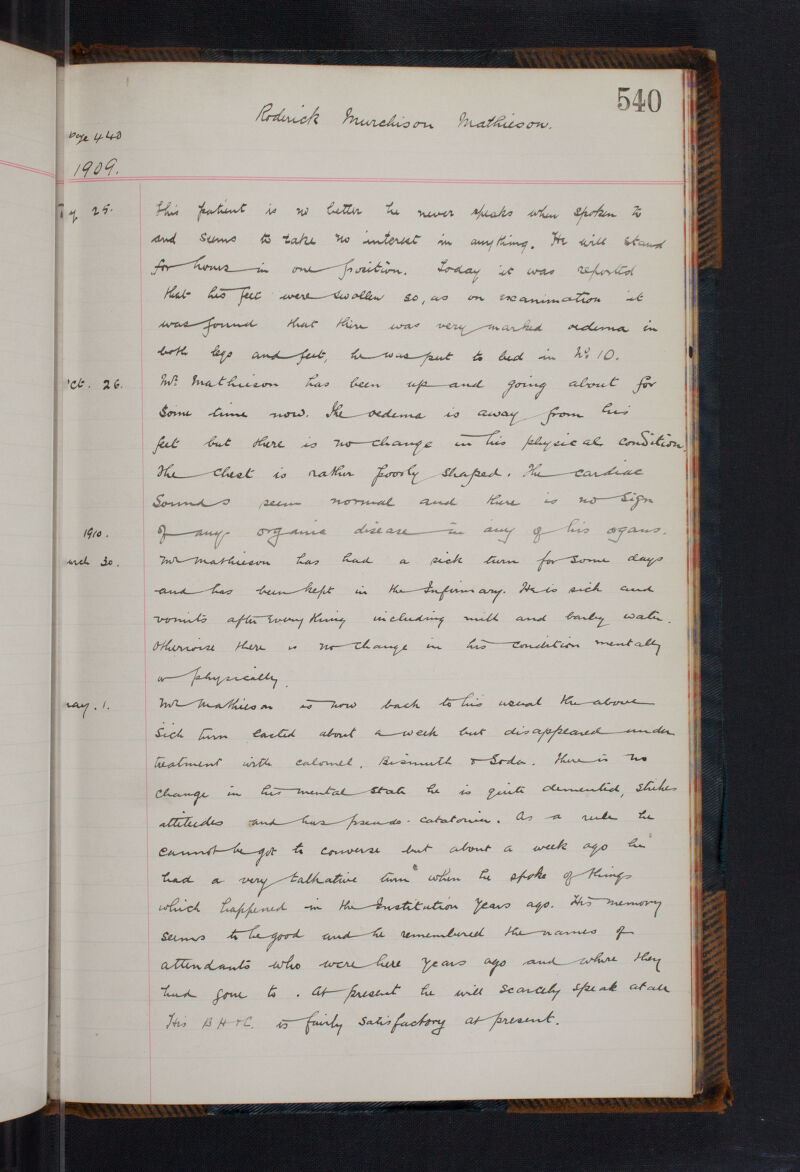 540
Roderick Murchison Mathieson.
page 440
1909.
25. This patient is no better he never speaks when spoken to
and seems to take no interest in anything. He will stand
for hours in one position. Today it was reported
that his feet were swollen so, as on examination it
was found that there was very marked oedema in
both legs and feet, he was put to bed in No 10.
Oct. 26. Mr Mathieson has been up and going about for
some time now. The oedema is away from his
feet but there is no change in his physical condition.
The chest is rather poorly shaped. The cardiac
Sounds seem normal and there is no sign
1910. of any organic disease in any of his organs.
March 30. Mr Mathieson has had a sick turn for some days
and has been kept in the Infirmary. He is sick and
vomits after everything including milk and barley water.
Otherwise there is no change in his condition mentally
or physically.
May. 1. Mr Mathieson is now back to his usual the above
Sick turn lasted about a week but disappeared under
treatment with calomel, Bismuth & Soda. There is no
change in his mental state he is quite demented, strikes
attitudes and has pseudo-catatonia. As a rule he
cannot be got to converse but about a week ago he
had a very "talkative turn" when he spoke of things
which happened in the Institution years ago. His memory
seems to be good and he remembered the names of
attendants who were here years ago and where they
had gone to. At present he will scarcely speak at all
His B H & C. is fairly satisfactory at present.